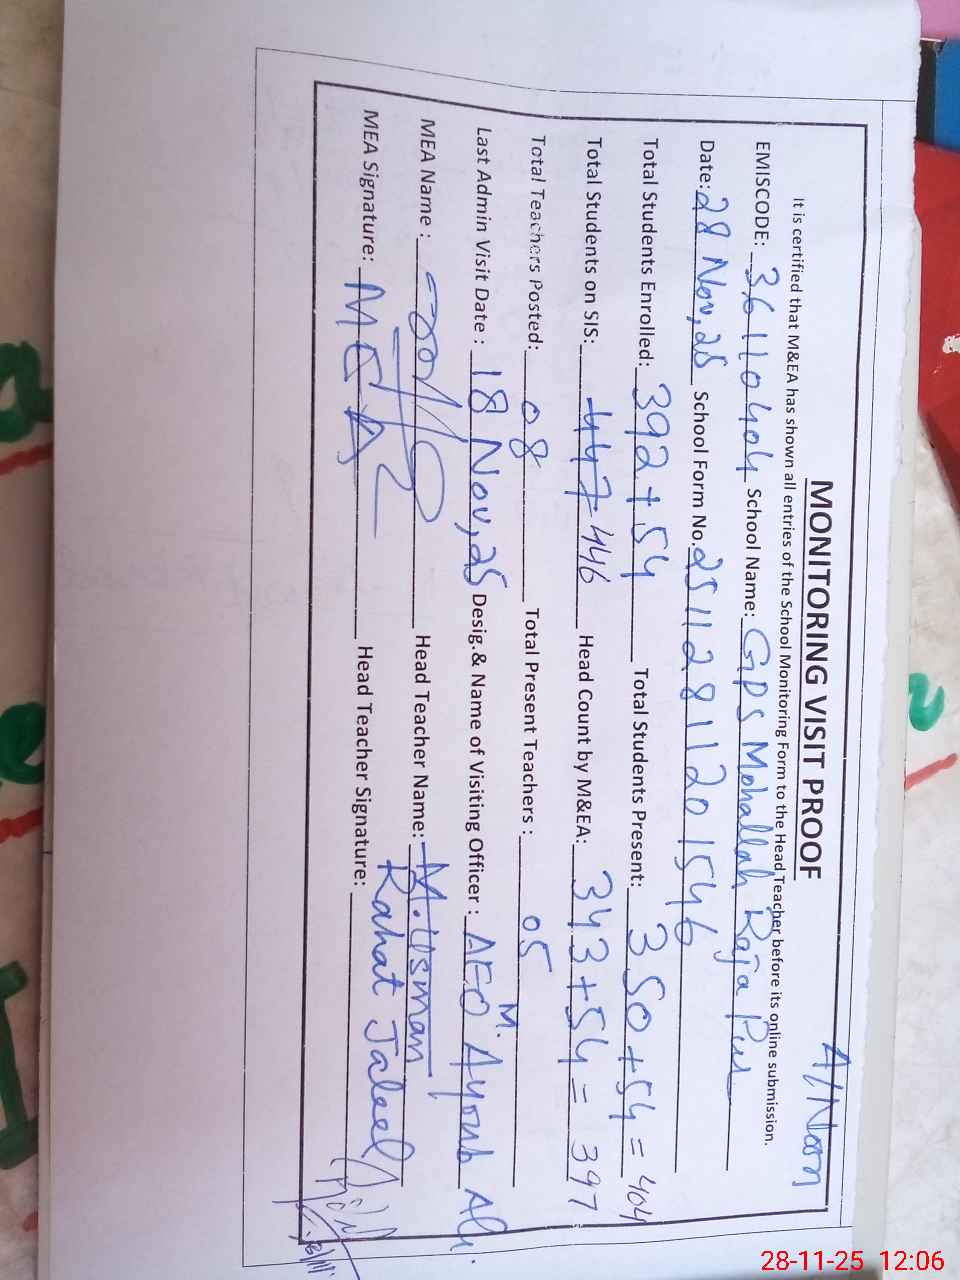 A/Noon
MONITORING VISIT PROOF
It is certified that M&EA has shown all entries of the School Monitoring Form to the Head Teacher before its online submission.
EMISCODE: 36110404 School Name: GPS Mohallah Raja Pur
Date: 28 Nov, 25 School Form No. 25112811201546
Total Students Enrolled: 392+54 Total Students Present: 350+54=404
Total Students on SIS: 447 446 Head Count by M&EA: 343+54=397
Total Teachers Posted: 08 Total Present Teachers : 05
Last Admin Visit Date : 18 Nov, 25 Desig.& Name of Visiting Officer : AEO M. Ayoub Ali.
MEA Name : Head Teacher Name: M. Usman
Rahat Jaleel
MEA Signature: MEA Head Teacher Signature:
28-11-25 12:06